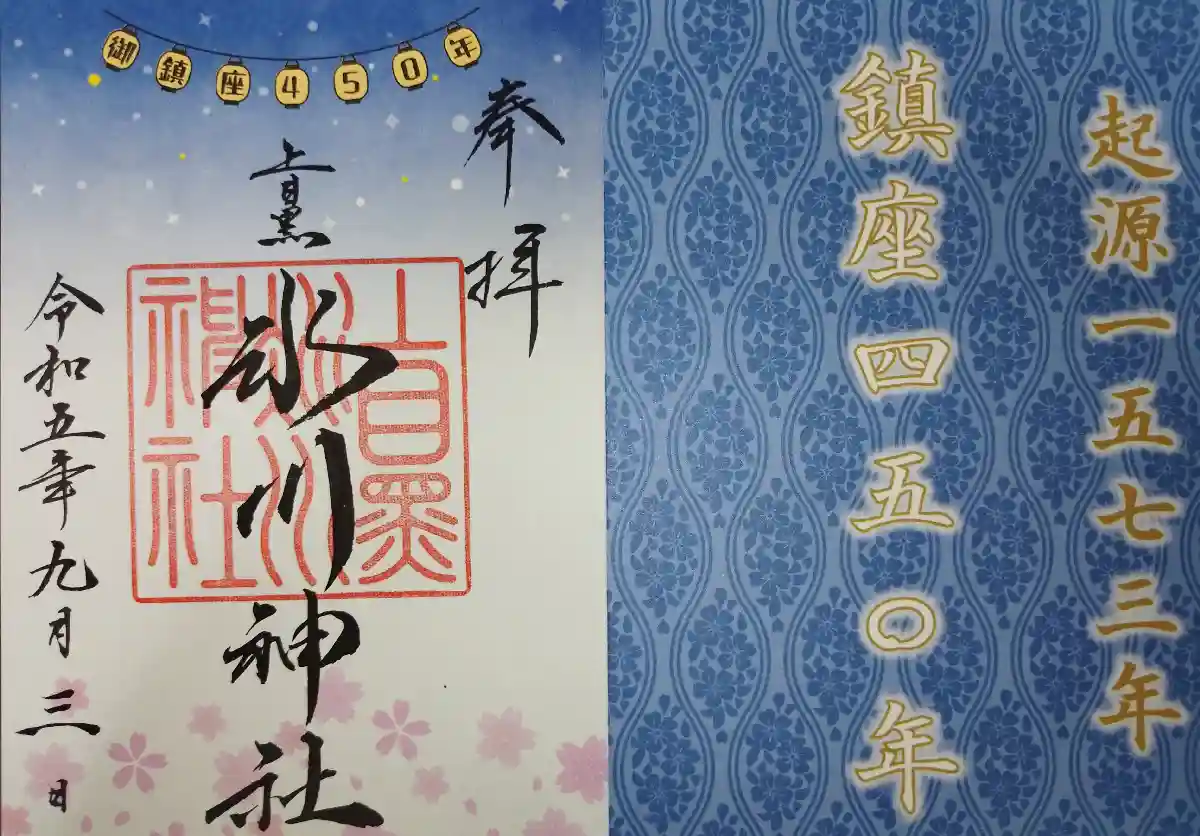 御鎮座450年
奉拝
上目黒
氷川神社
上目黒
氷川
神社
令和五年九月三日
起源一五七三年
鎮座四五〇年